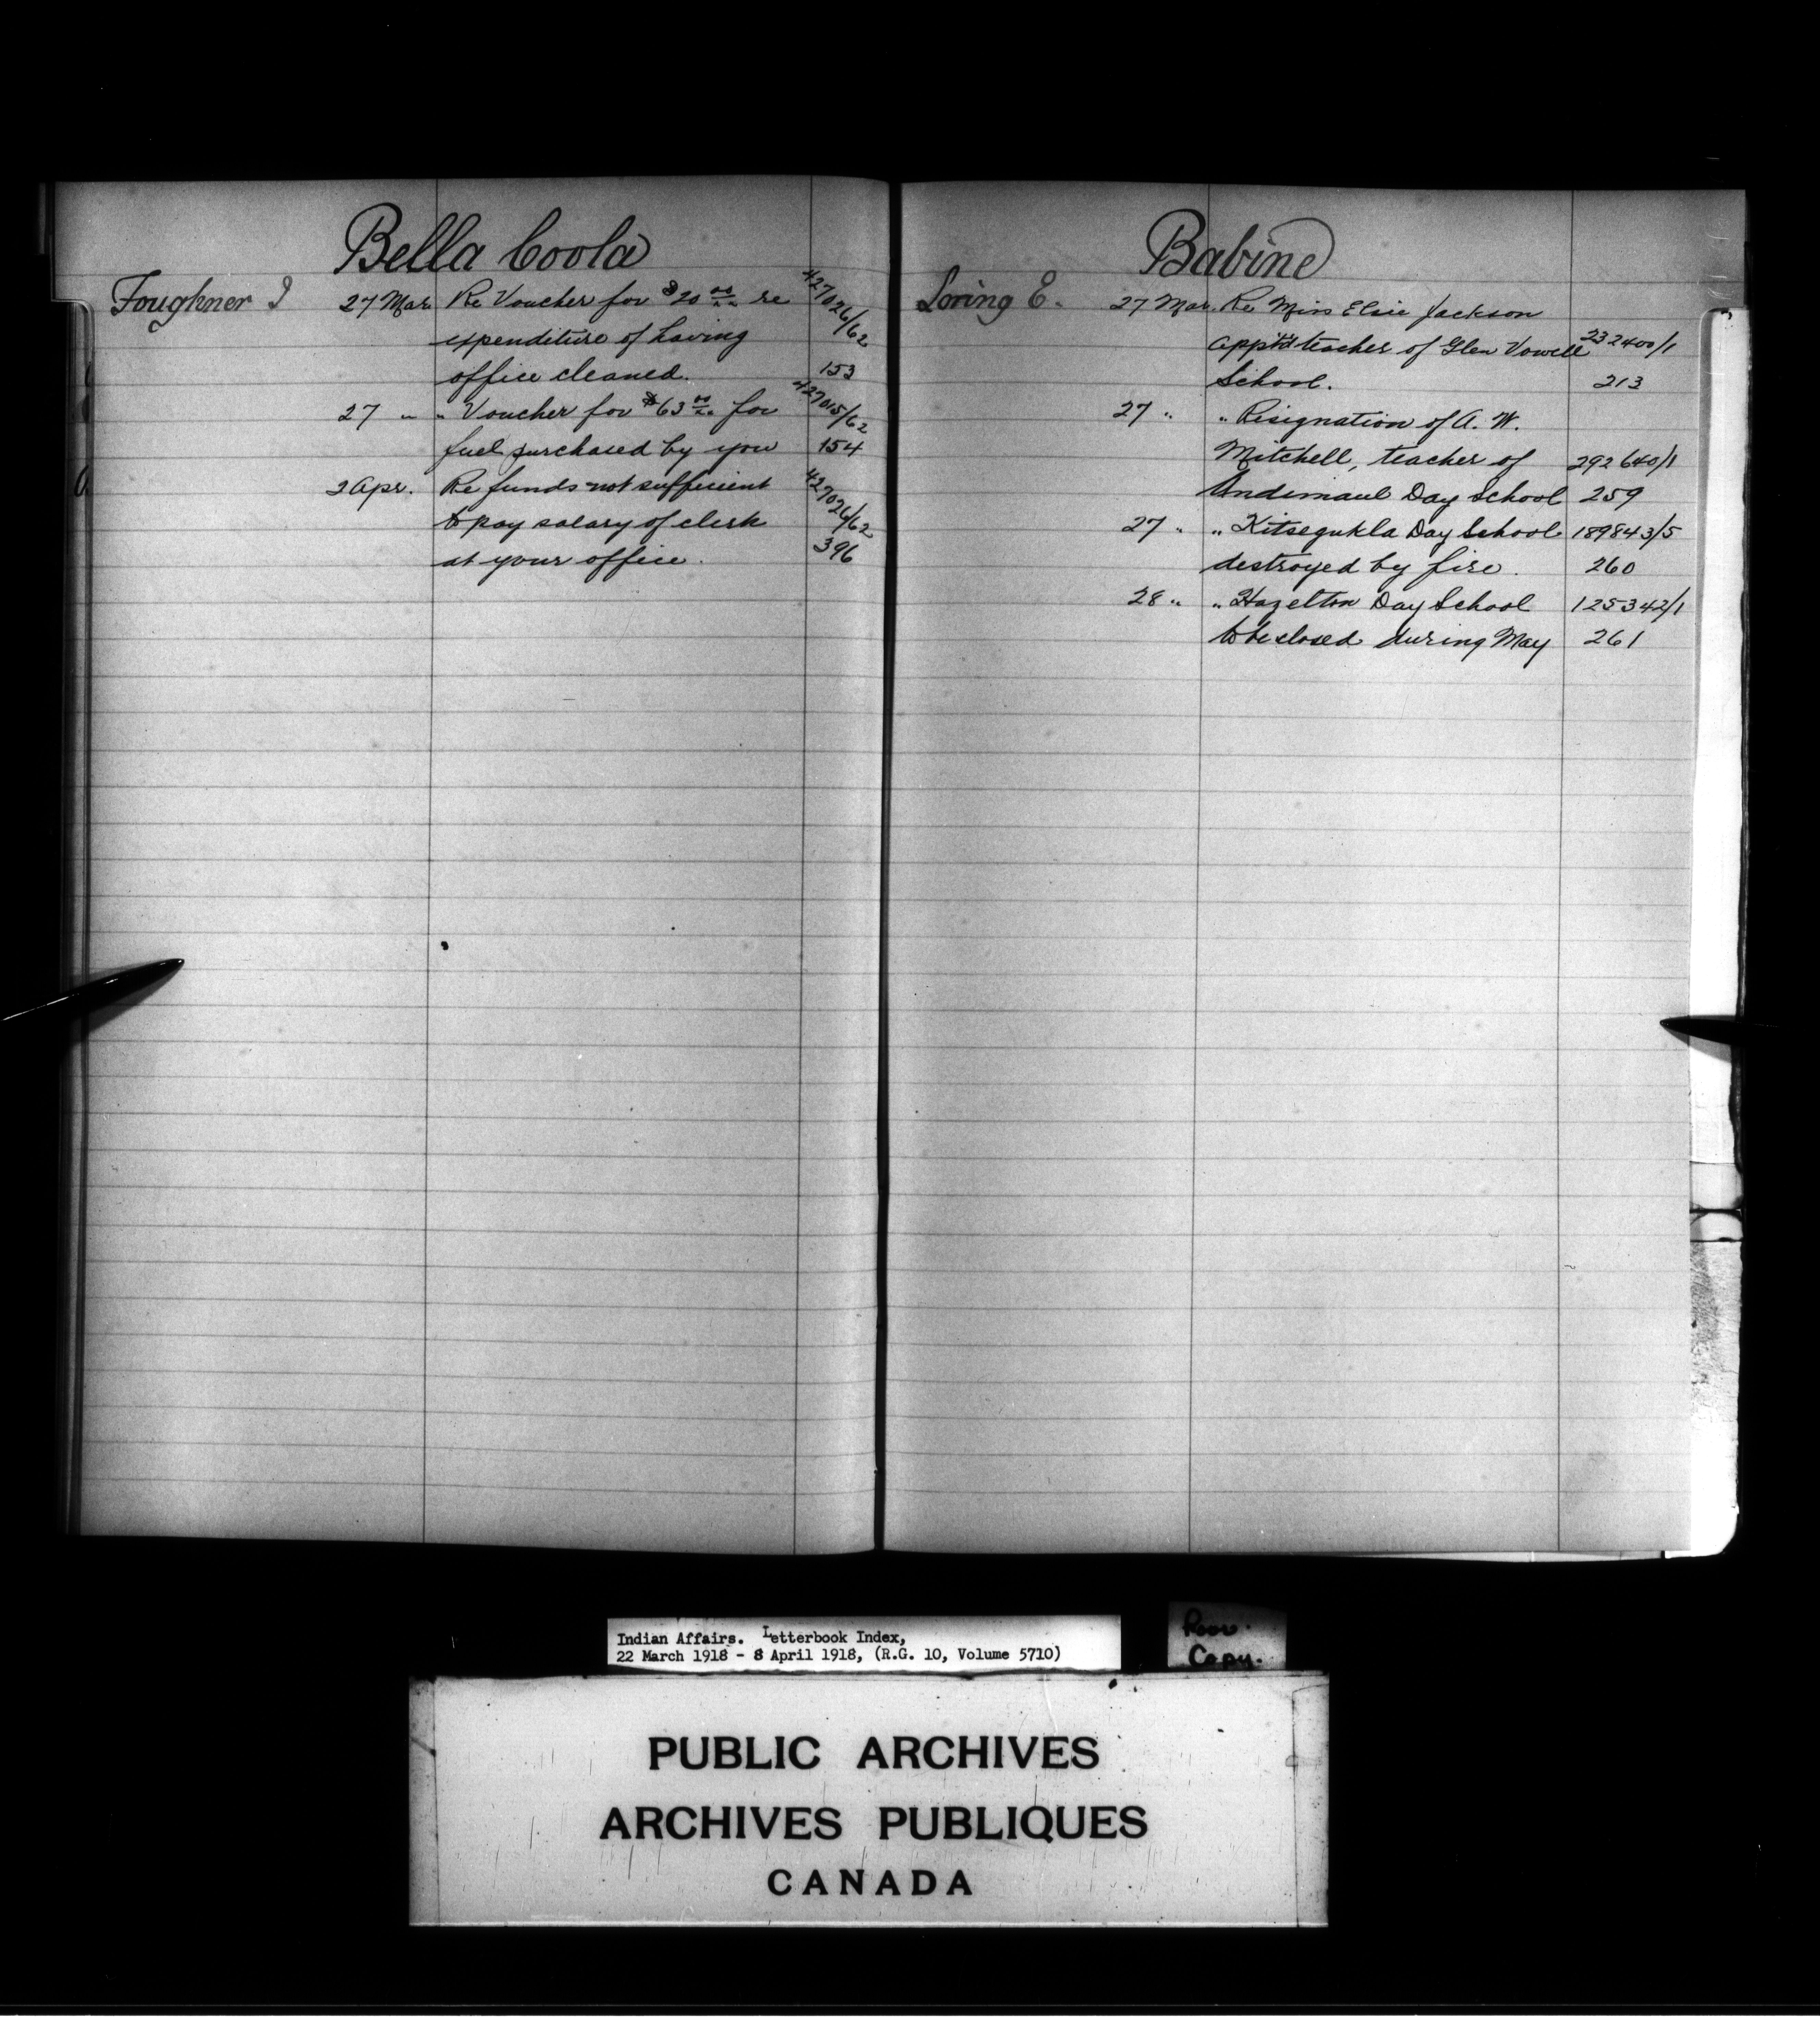 Bella Coola
Foughner I 27 Mar. Re Voucher for $20 00/xx re 427026/62
expenditure of having
office cleaned. 153
27 " " Voucher for $63 00/xx for 427015/62
fuel purchased by you 154
2 Apr. Re funds not sufficient 427026/62
to pay salary of clerk
at your office. 396
Babine
Loring E. 27 Mar. Re Miss Elsie Jackson
app'td teacher of Glen Vowell 232400/1
School. 213
27 " " Resignation of A. W.
Mitchell, teacher of 292640/1
Andimaul Day School 259
27 " " Kitsegukla Day School 189843/5
destroyed by fire. 260
28 " " Hazelton Day School 125342/1
to be closed during May 261
Indian Affairs. Letterbook Index,
22 March 1918 - 8 April 1918, (R.G. 10, Volume 5710)
Copy.
PUBLIC ARCHIVES
ARCHIVES PUBLIQUES
CANADA